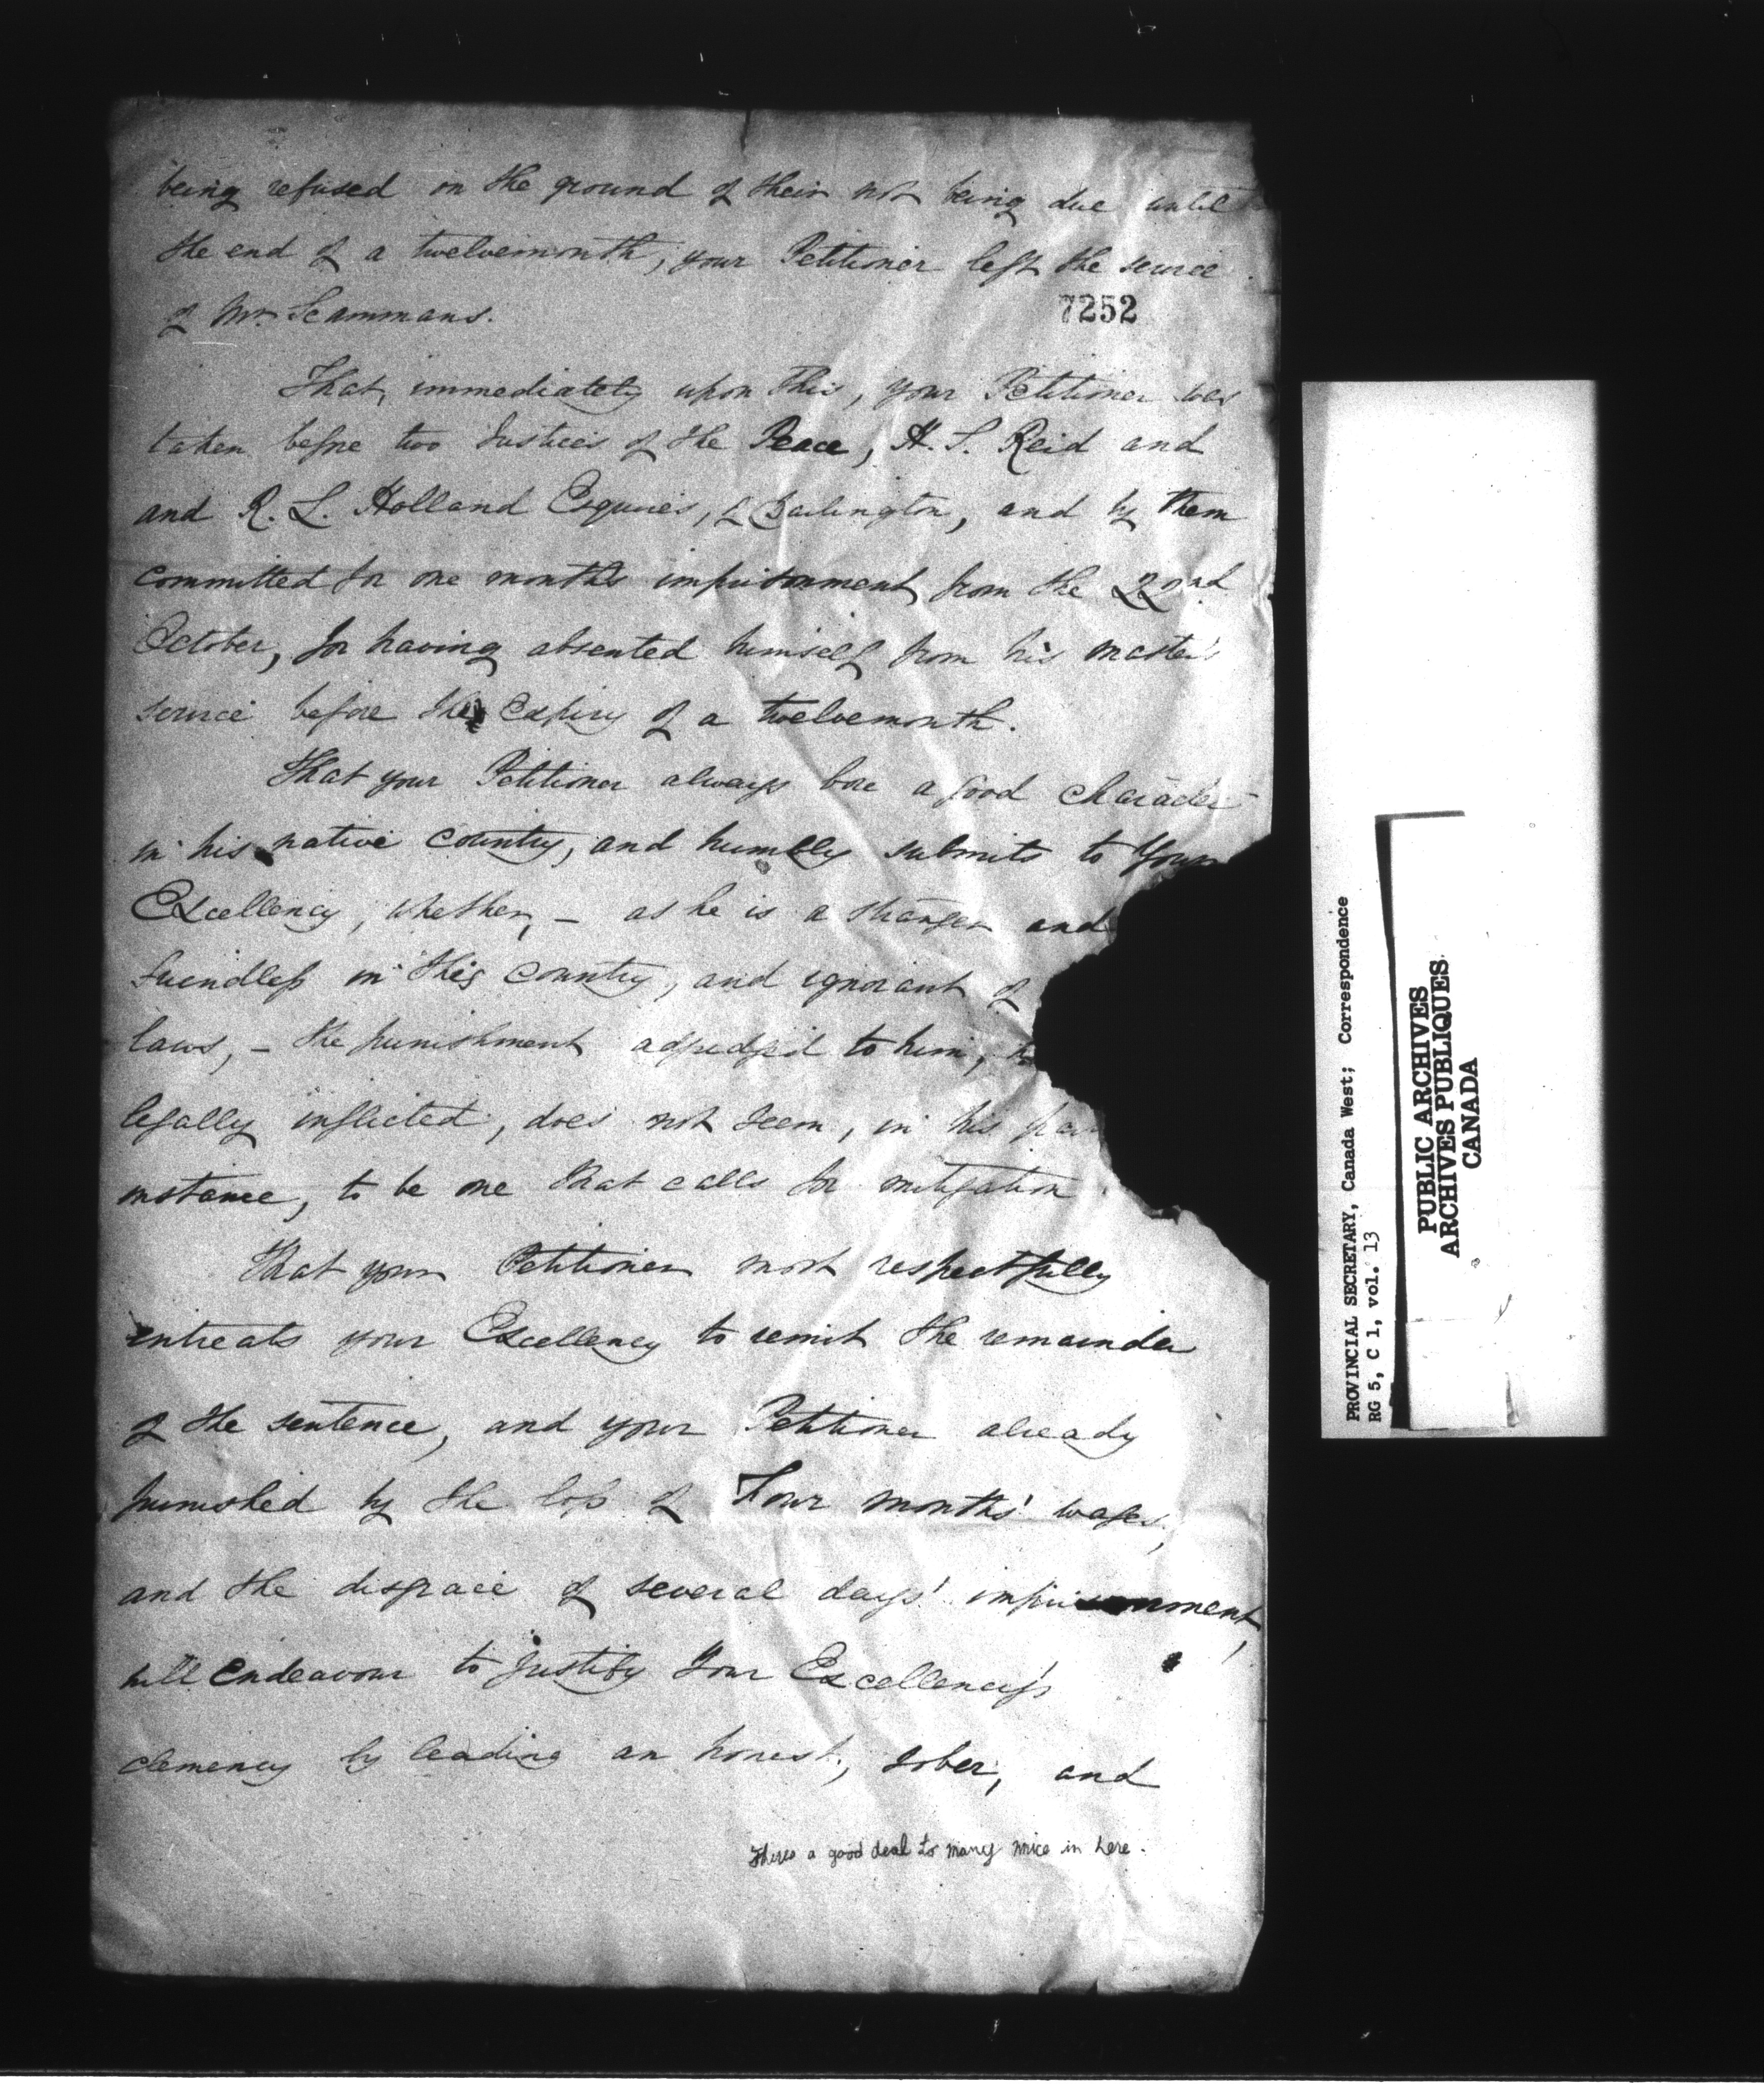 being refused on the ground of their not being due until
the end of a twelvemonth, your Petitioner left the service
of Mr. Scammans.
7252
That, immediately upon this, your Petitioner was
taken before two Justices of the Peace, H. S. Reid and
and R. L. Holland Esquires, of Darlington, and by them
committed for one month's imprisonment from the 22nd
October, for having absented himself from his master's
service before the expiry of a twelvemonth.
That your Petitioner always bore a good character
in his native country, and humbly submits to Your
Excellency, whether, – as he is a stranger and
friendless in this country, and ignorant of
laws, – the punishment adjudged to him,
legally inflicted, does not seem, in his
instance, to be one that calls for mitigation.
That your Petitioner most respectfully
entreats your Excellency to remit the remainder
of the sentence, and your Petitioner already
punished by the loss of Four months' wages,
and the disgrace of several days' imprisonment,
will endeavour to justify Your Excellency's
clemency by leading an honest, sober, and
Theres a good deal to many mice in here.
PROVINCIAL SECRETARY, Canada West; Correspondence
RG 5, C 1, vol. 13
PUBLIC ARCHIVES
ARCHIVES PUBLIQUES
CANADA